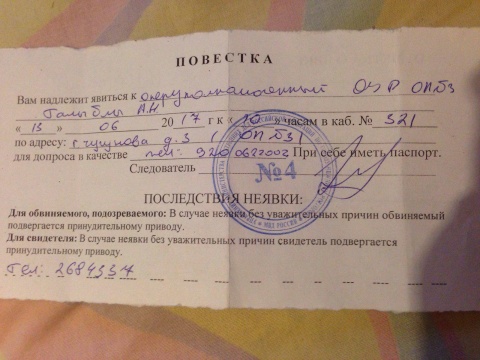 ПОВЕСТКА
Вам надлежит явиться к оперуполномоченный ОУР ОП №3
А.Н
« 13 » 06 2017 г к « 10 » часам в каб. № 321
по адресу: д. 3 ( ОП №3)
для допроса в качестве тел: При себе иметь паспорт.
Следователь
№4
ПОСЛЕДСТВИЯ НЕЯВКИ:
Для обвиняемого, подозреваемого: В случае неявки без уважительных причин обвиняемый
подвергается принудительному приводу.
Для свидетеля: В случае неявки без уважительных причин свидетель подвергается
принудительному приводу.
Тел: